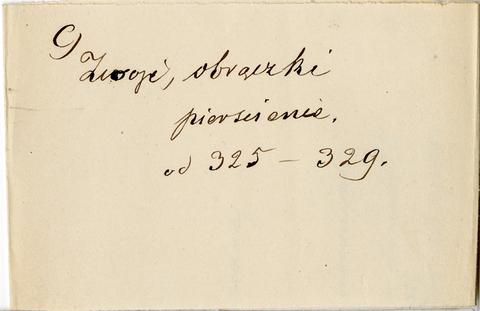 9) Zwoje, obrączki
pierścienie.
od 325 – 329.